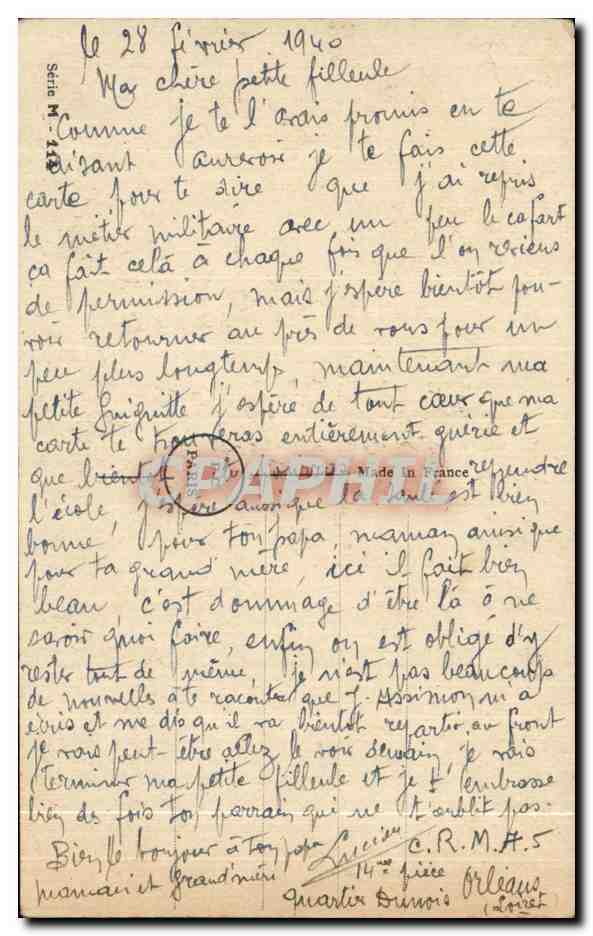 le 28 février 1940
Ma chère petite filleule
Comme je te l'avais promis en te
disant aurevoir je te fais cette
carte pour te dire que j'ai repris
le métier militaire avec un peu le cafart
ça fait celà à chaque fois que l'on reviens
de permission, mais j'espere bientôt pou-
voir retourner au près de vous pour un
peu plus longtemps, maintenant ma
petite Guiguitte j'espère de tout cœur que ma
carte te trouveras entièrement guérie et
que bientôt tu reprendre
l'école, j'espère aussi que la santé est bien
bonne, pour ton papa, maman ainsi que
pour ta grand mère, ici il fait bien
beau, c'est dommage d'être là à ne
savoir quoi faire, enfin on est obligé d'y
rester tout de même, je n'est pas beaucoup
de nouvelles à te raconter que J. Assimon m'a
écris et me dis qu'il va bientôt repartir au front
je vais peut-être allez le voir demain, je vais
terminer ma petite filleule et je t'embrasse
bien des fois ton parrain qui ne t'oublit pas.
Bien le bonjour à ton papa
maman et Grand'mère
Lucien
C.R.M.A.5
14me pièce
quartier Dunois Orléans
(Loiret)
Série M - 114
PARIS
Made In France
CPAPHIL